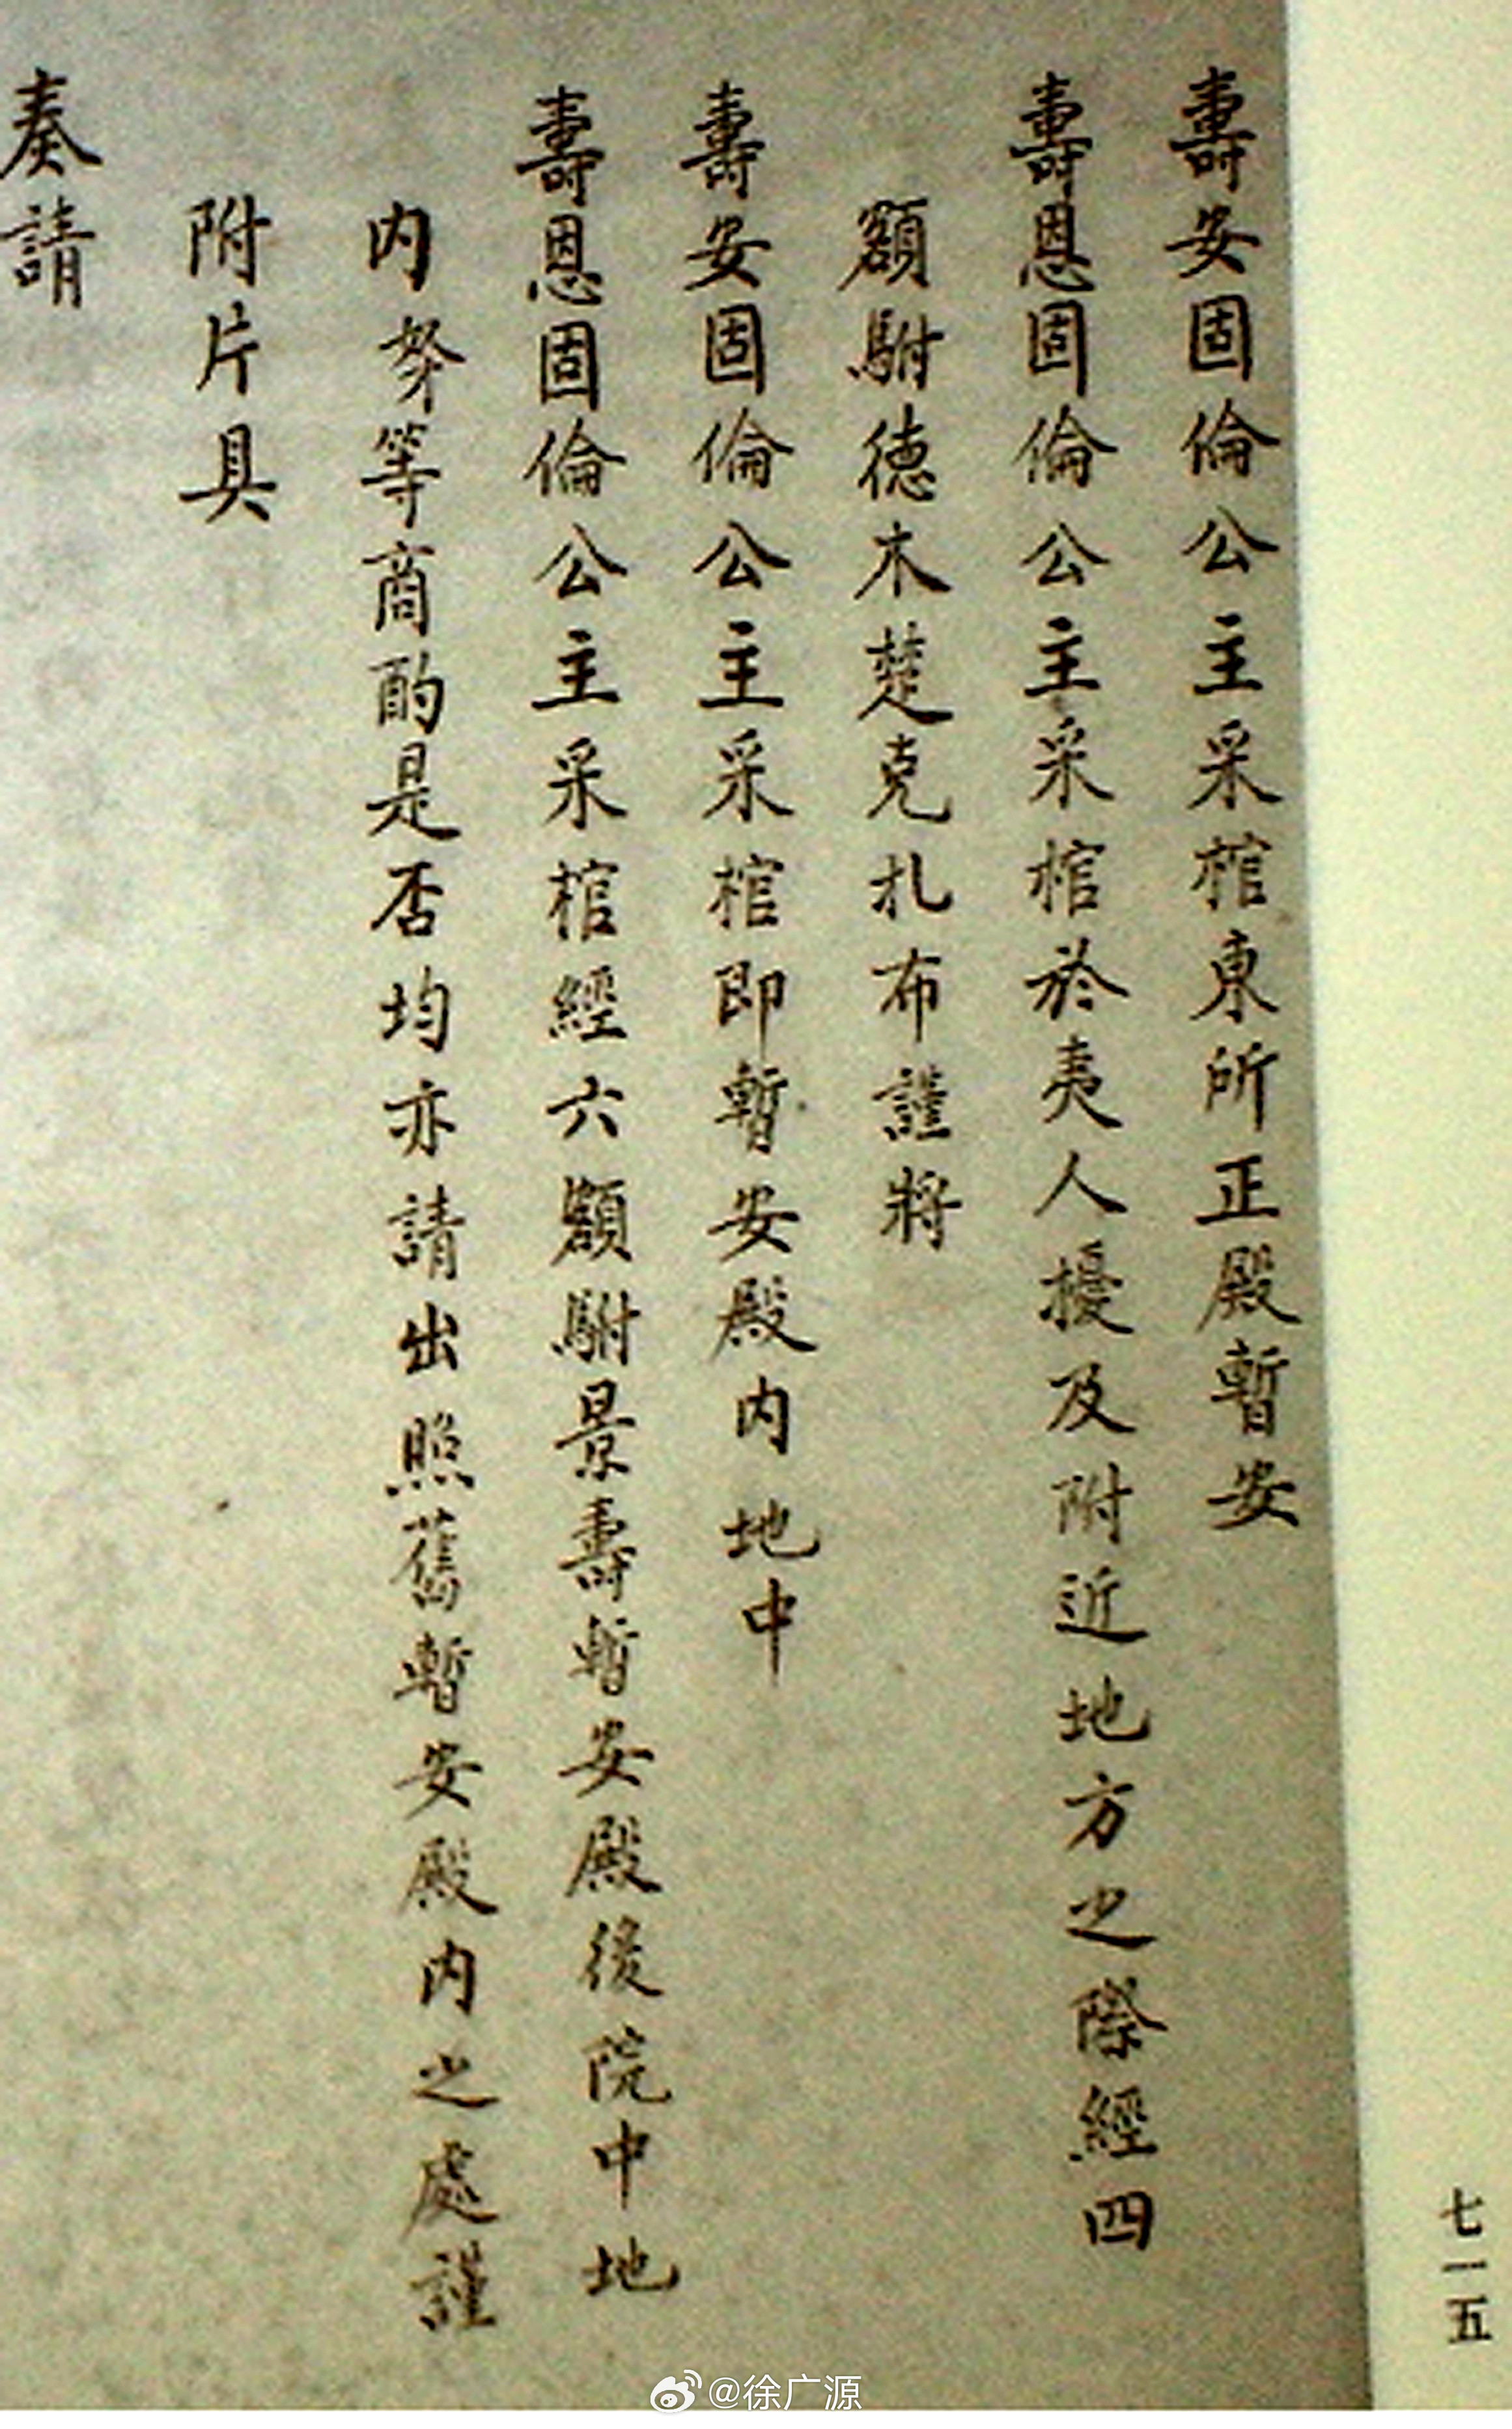 壽安固倫公主采棺東所正殿暫安
壽恩固倫公主采棺於夷人擾及附近地方之際經四
額駙德木楚克扎布謹將
壽安固倫公主采棺即暫安殿内地中
壽恩固倫公主采棺經六額駙景壽暫安殿後院中地
内孥等商酌是否均亦請出照舊暫安殿内之處謹
附片具
奏請
七一五
@徐广源